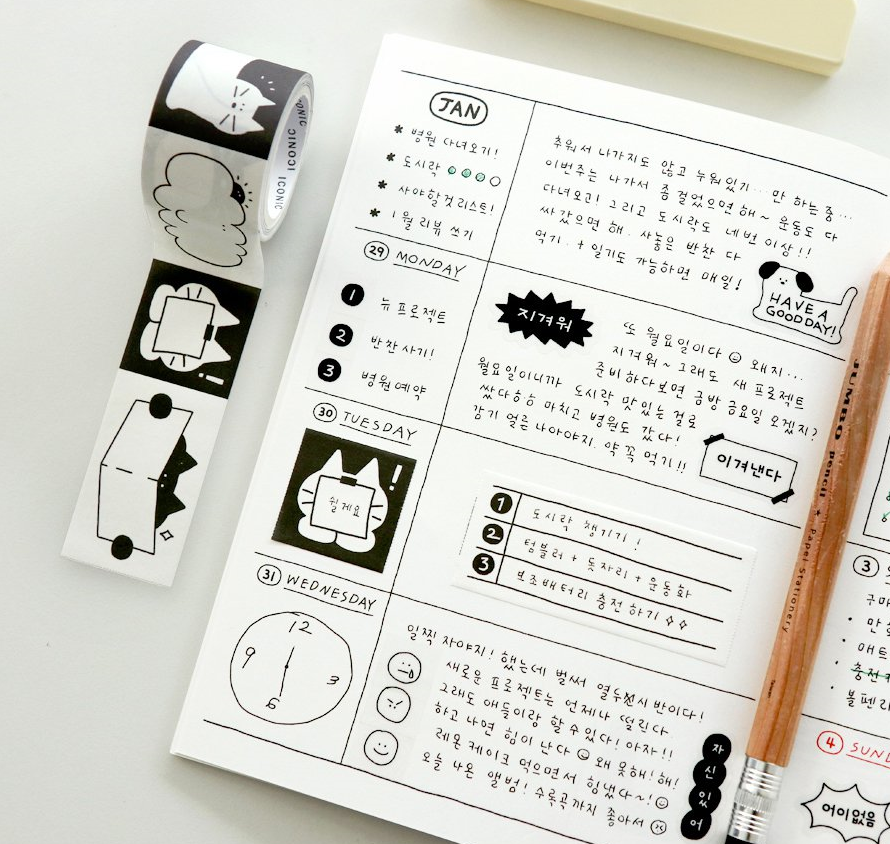 ICONIC
ICONIC
ICONIC
JAN
* 병원 다녀오기!
* 도시락
* 사야할것리스트!
* 1월 리뷰 쓰기
추워서 나가지도 않고 누워있기... 만 하는 중...
이번주는 나가서 좀 걸었으면 해~ 운동도 다
다녀오고! 그리고 도시락도 네번 이상!!
싸갔으면 해. 사놓은 반찬 다
먹기. + 일기도 가능하면 매일!
HAVE A
GOOD DAY!
29 MONDAY
1 뉴프로젝트
2 반찬사기!
3 병원예약
지겨워
또 월요일이다 왜지...
지겨워~ 그래도 새 프로젝트
준비하다보면 금방 금요일 오겠지?
월요일이니까 도시락 맛있는 걸로
쌌다 마치고 병원도 갔다!
감기 얼른 나아야지. 약 꼭 먹기!!
이겨낸다
30 TUESDAY
!
쉴게요
1 도시락 챙기기!
2 텀블러 + 돗자리 + 운동화
3 보조배터리 충전하기
31 WEDNESDAY
12
9
3
6
일찍 자야지! 했는데 벌써 열두시 반이다!
새로운 프로젝트는 언제나 떨린다.
그래도 애들이랑 할 수 있다! 아자!!
하고 나면 힘이 난다 왜 웃해! 해!
레몬 케이크 먹으면서 힘냈다~!
오늘 나온 앨범! 수록곡까지 좋아서
자
신
있
어
JUMBO pencil + Papier Stationery
3
구마
· 만
· 매트
· 충전
· 볼펜
4 SUND
어이없음